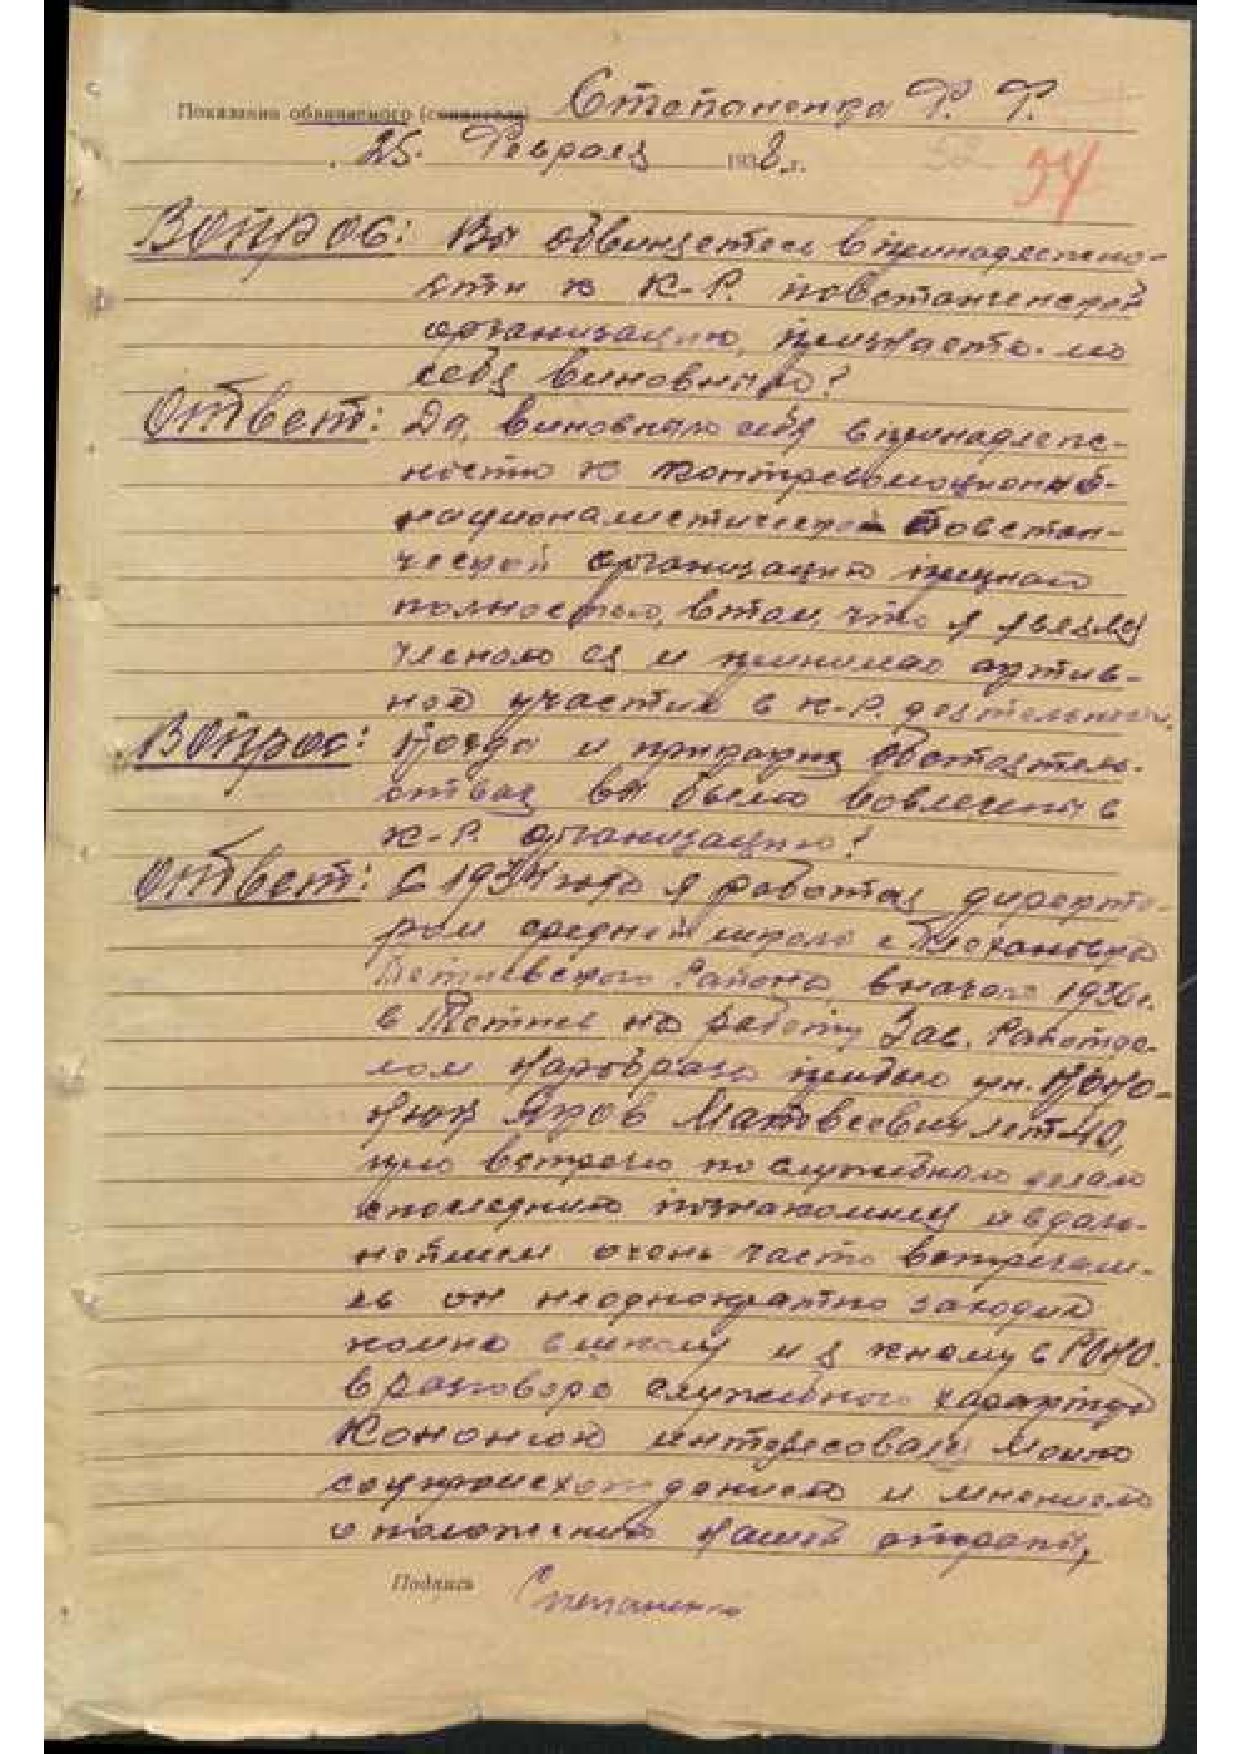 Показания обвиняемого (свидетеля) Степаненко Ф. Ф.
25. Февраля 1938 г.
52 54
Вопрос: Вы обвиняетесь в принадлежно-
сти к К-Р. повстанческой
организацию, признаете-ли
себя виновным?
Ответ: Да, виновным себя в принадлеж-
ностью к контрреволюционной-
националистической повстан-
ческой организацию признаю
полностью, в том, что я являлся
членом ея и принимал актив-
ное участие в К-Р. деятельности.
Вопрос: Когда и при каких обстоятель-
ствах вы были вовлечены в
К-Р. организацию?
Ответ: С 1934 года я работая директо-
ром средней школы с
района, вначале 1936 г.
в на работу Зав. Райотде-
лом Наробраза прибыл Коно-
нюк Яков Матвеевич лет 40,
при встречи по служебным делам
споследним познакомился и в даль-
нейшем очень часто встречали-
сь он неоднократно заходил
комне в школу и я кнему в РОНО.
в разговоре служебного характера
Кононюк интересовался моим
соцпроисхождением и мнением
о положении нашей страны,
Подпись Степаненко